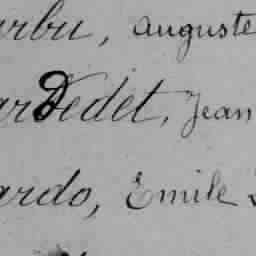 arbu, auguste
arDedet, Jean
ardo, Emile